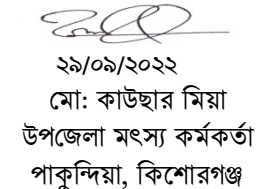 ২৯/০৯/২০২২
মো: কাউছার মিয়া
উপজেলা মৎস্য কর্মকর্তা
পাকুন্দিয়া, কিশোরগঞ্জ